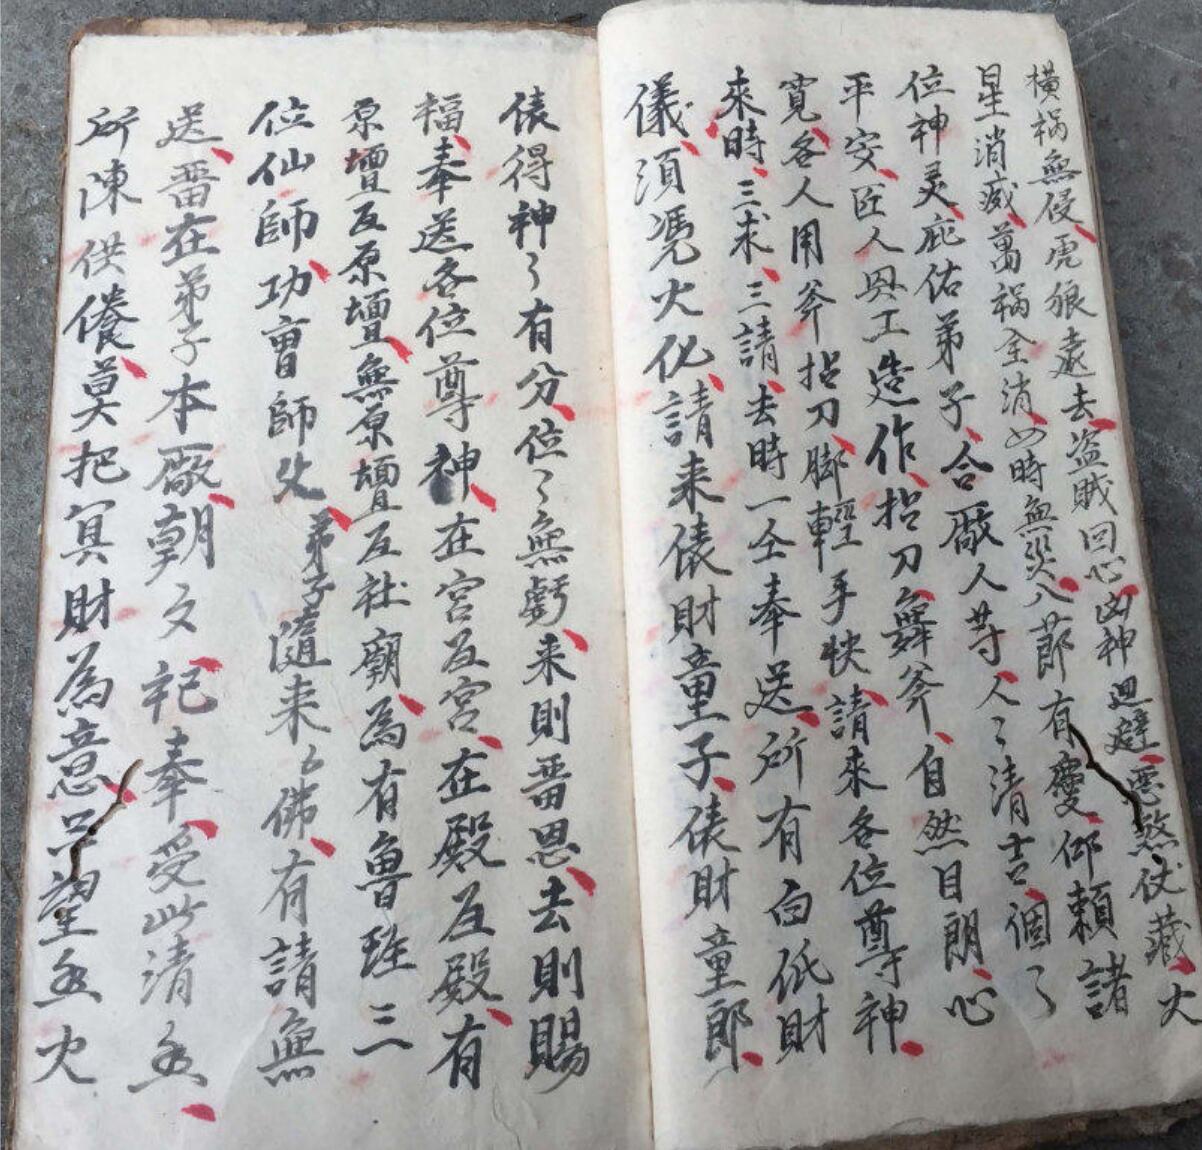 橫禍無侵虎狼遠去盗賊回心凶神廻避惡煞伏藏火
星消滅萬禍全消四時無災八節有慶仰賴諸
位神灵庇佑弟子合廠人等人〻清吉個了
平安匠人興工造作抬刀舞斧自然目朗心
寬各人用斧抬刀脚輕手快請来各位尊神
来時三求三請去時一仝奉送所有白纸財
儀須憑火化請来俵財童子俵財童郎
俵得神〻有分位〻無虧来則畱恩去則賜
福奉送各位尊神在宮返宮在殿返殿有
原壇返原壇無原壇返社廟為有魯班三
位仙師功曹師父弟子隨来佛有請無
送畱在弟子本廠朝夕祀奉受此清
所陳供僎莫把冥財為意望火